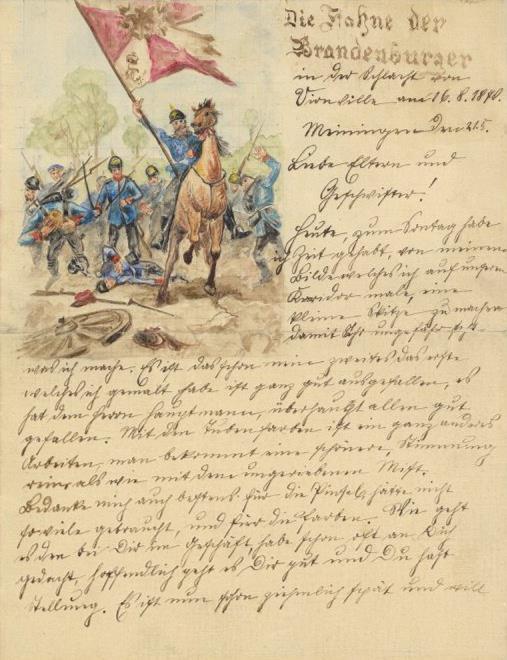 Die Fahne der
Brandenburger
in der Schlacht von
Vionville am 16.8.1870.
Meiningen den 21.5.
Liebe Eltern und
Geschwister!
Heute, zum Sontag habe
ich Zeit gehabt, von meinem
Bilde welches ich auf unserm
Koridor male, eine
kleine Skitze zu machen
damit Ihr ungefähr seht
was ich mache. Es ist das schon mein zweites das erste
welches ich gemalt habe ist ganz gut ausgefallen, es
hat dem Herrn Hauptmann, überhaupt allen gut
gefallen. Mit den Tubenfarben ist ein ganz anders
Arbeiten, man bekommt eine schönere, Stimmung
rein, als wie mit dem ungeriebenen Mist.
Bedanke mich auch bestens für die Pinsel, hätte nicht
soviele gebraucht, und für die Farben. Wie geht
es den bei Dir im Geschäft, habe schon oft an Dich
gedacht, hoffendlich geht es Dir gut und Du hast
Stellung. Es ist nun schon ziehmlich spät und will